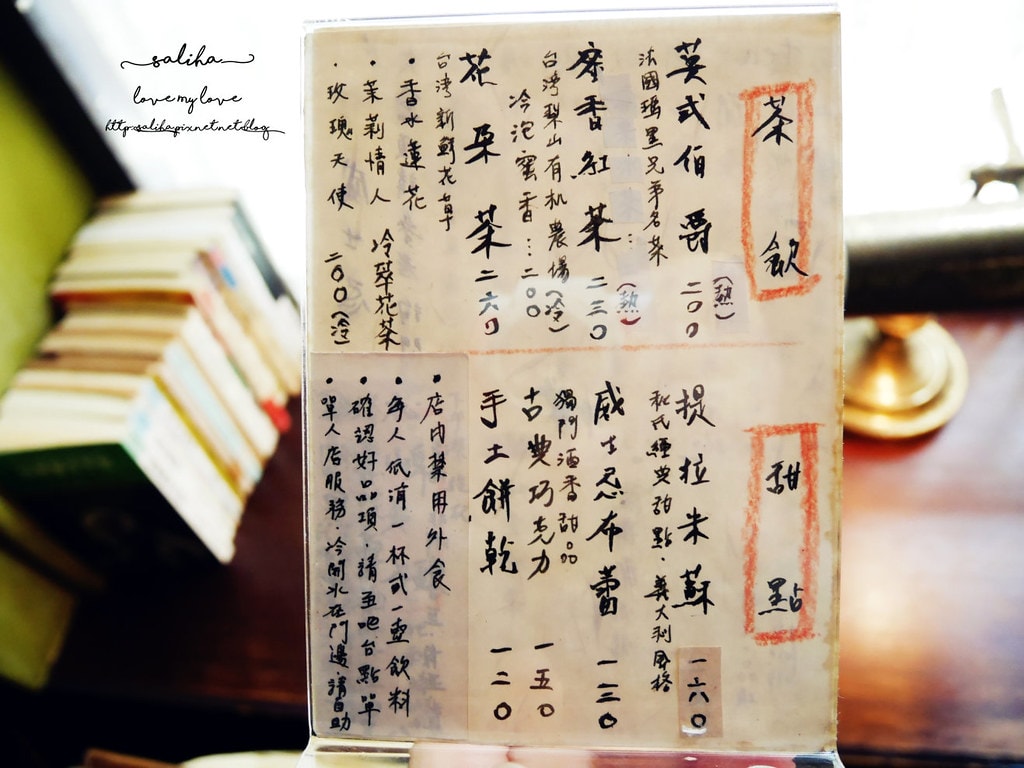 saliha
love my love
http://saliha.pixnet.net/blog
茶飲
英式伯爵 二〇〇
(熱)
法國瑪黑兄弟名茶
蜜香紅茶 二三〇
(熱)
台灣梨山有机農場(冷)
冷泡蜜香：二〇〇
花朵茶 二六〇
台灣新鮮花草
•香水蓮花
•茉莉情人 冷萃花茶
•玫瑰天使 二〇〇(冷)
甜點
提拉米蘇 一六〇
私氏經典甜點·義大利風格
威士忌布蕾 一三〇
獨門酒香甜品
古典巧克力 一五〇
手工餅乾 一二〇
•店內禁用外食
•每人低消一杯或一壺飲料
•確認好品項，請至吧台點單
•單人店服務，冷開水在門邊請自助